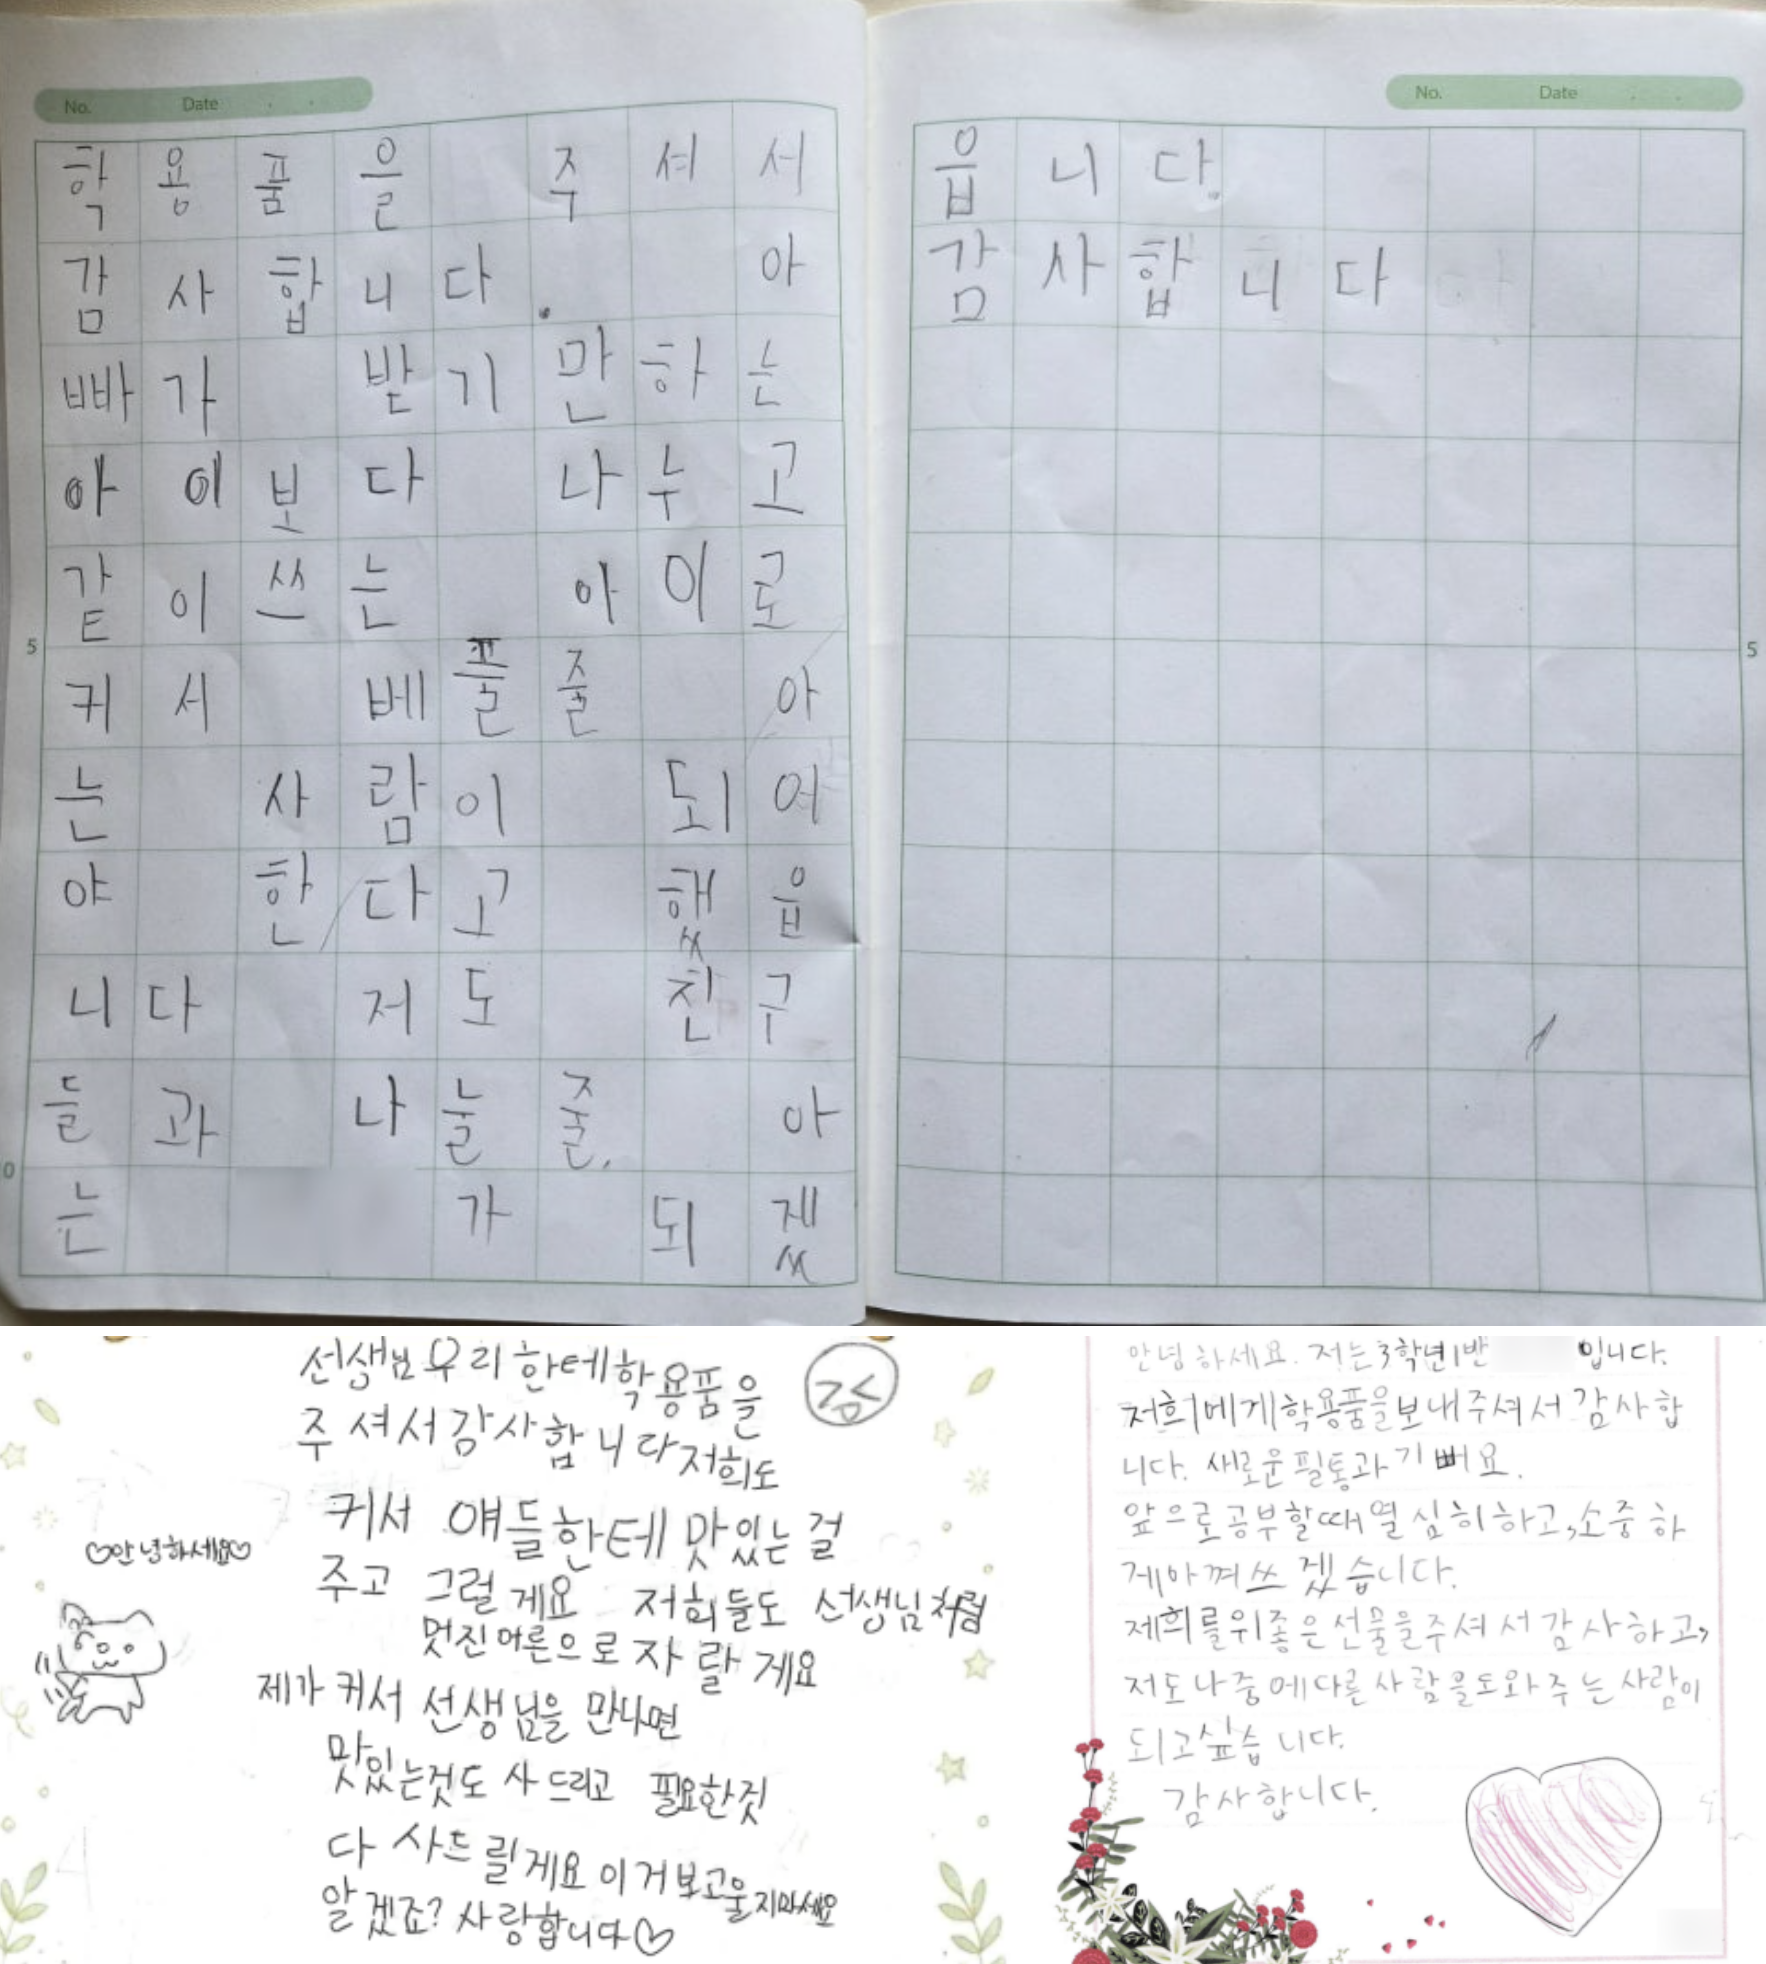 No. Date
학용품을 주셔서
감사합니다. 아
빠가 받기만하는
아이보다 나누고
같이쓰는 아이로
커서 베풀줄 아
는 사람이 되어
야 한다고 했읍
니다 저도 친구
5
들과 나눌줄. 아
0
는 가 되겠
No. Date
읍니다.
감사합니다
5
선생님우리한테학용품을
주셔서감사합니다저희도
커서 얘들한테 맛있는 걸
주고 그럴게요 저희들도 선생님처럼
멋진어른으로자랄게요
제가커서 선생님을 만나면
맛있는것도 사드리고 필요한것
다 사드릴게요이거보고울지마세요
알겠죠? 사랑합니다♡
♡안녕하세요♡
안녕하세요. 저는3학년1반 입니다.
저희에게학용품을보내주셔서감사합
니다. 새로운필통과기뻐요.
앞으로공부할때열심히하고,소중하
게아껴쓰겠습니다.
제희를위좋은선물을주셔서감사하고,
저도나중에다른사람을도와주는사람이
되고싶습니다.
감사합니다.